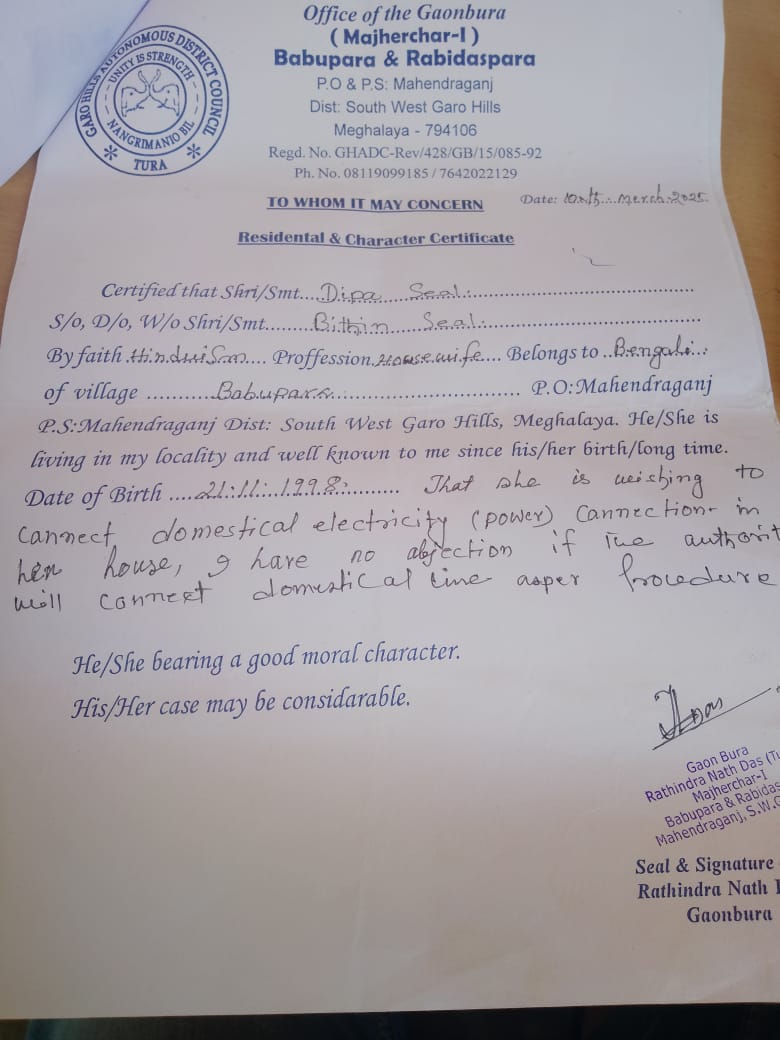 Office of the Gaonbura
( Majherchar-I )
Babupara & Rabidaspara
P.O & P.S: Mahendraganj
Dist: South West Garo Hills
Meghalaya - 794106
Regd. No. GHADC-Rev/428/GB/15/085-92
Ph. No. 08119099185 / 7642022129
GARO HILLS AUTONOMOUS DISTRICT COUNCIL
UNITY IS STRENGTH
NANGRIMANIO BIL
TURA
TO WHOM IT MAY CONCERN
Date: 10th March 2025
Residental & Character Certificate
Certified that Shri/Smt....Dipa Seal
S/o, D/o, W/o Shri/Smt........Bithin Seal
By faith Hinduism.... Proffession House wife.... Belongs to ..Bengali...
of village ...........Babupara................ P.O:Mahendraganj
P.S:Mahendraganj Dist: South West Garo Hills, Meghalaya. He/She is
living in my locality and well known to me since his/her birth/long time.
Date of Birth ....21.11.1998.......... That she is wishing to
cannect domestical electricity (power) cannection in
her house, I have no abjection if the authorit
will connect domestical line asper Procedure
He/She bearing a good moral character.
His/Her case may be considarable.
Gaon Bura
Rathindra Nath Das (Tu
Majherchar-I
Babupara & Rabidas
Mahendraganj, S.W.G
Seal & Signature
Rathindra Nath
Gaonbura